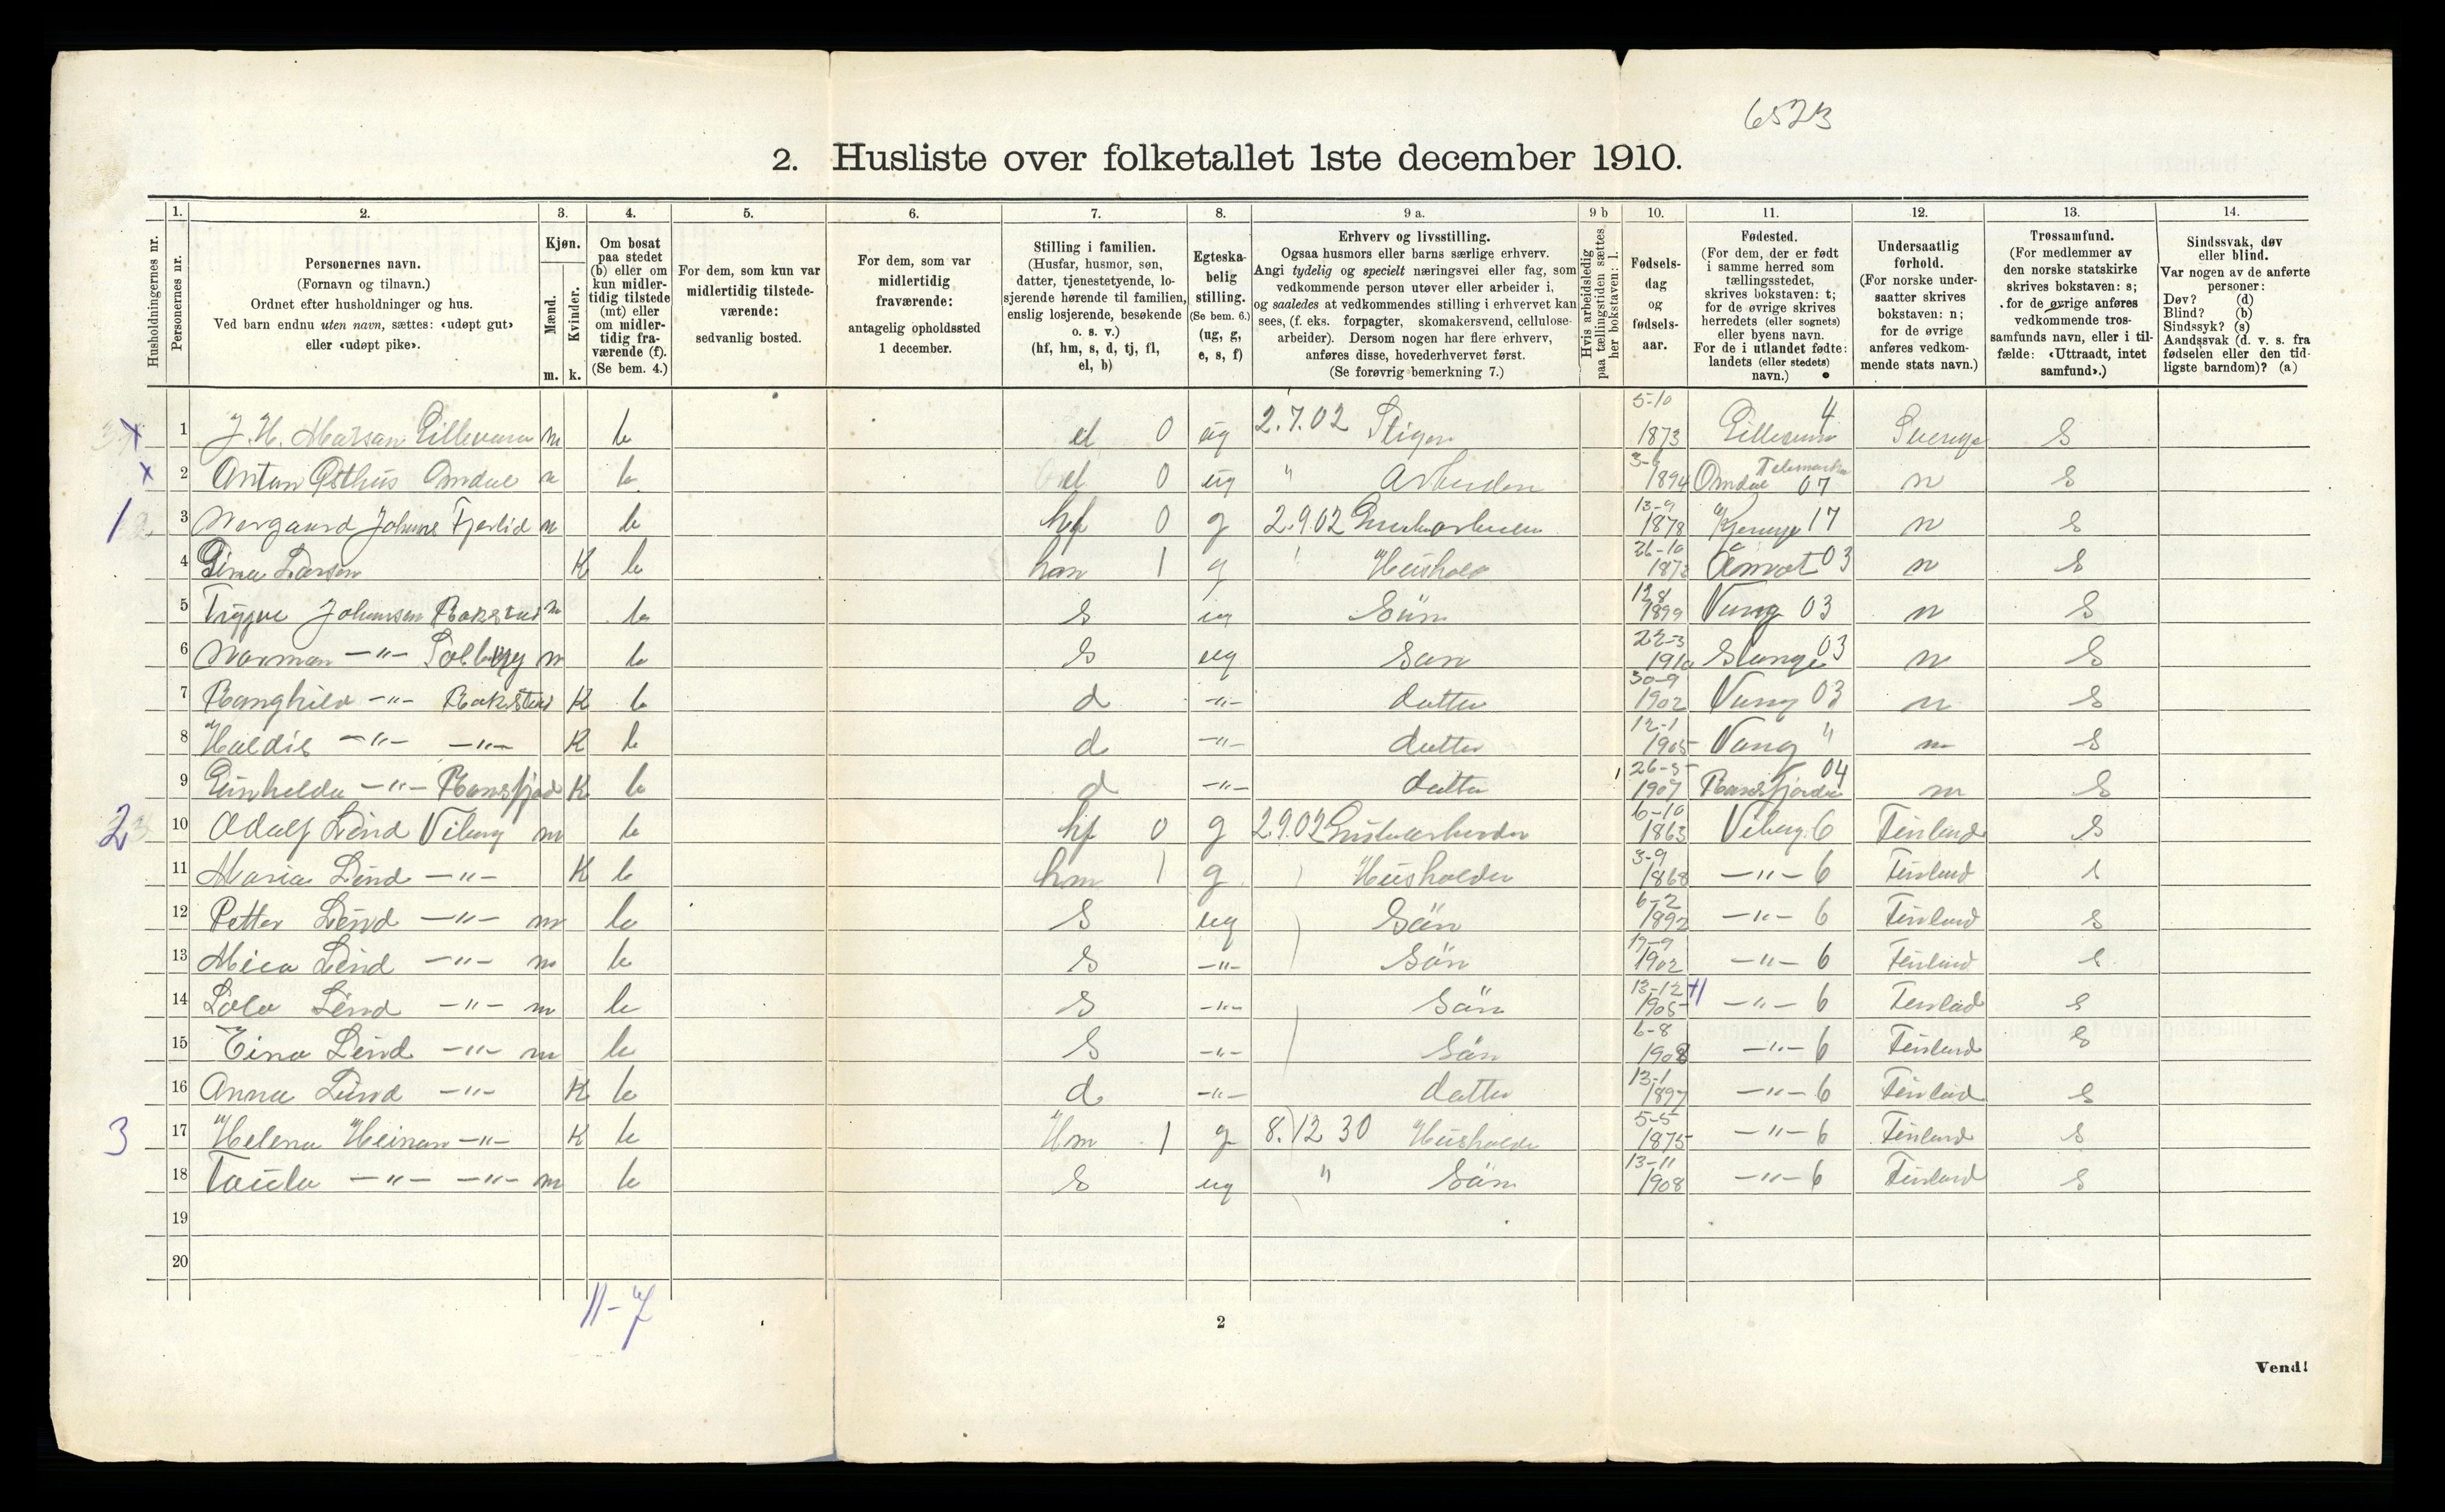 6523
2. Husliste over folketallet 1ste december 1910.
Husholdningernes nr.
1. Personernes nr.
2. Personernes navn. (Fornavn og tilnavn.) Ordnet efter husholdninger og hus. Ved barn endnu uten navn, sættes: «udøpt gut» eller «udøpt pike».
3. Kjøn. Mænd. m. Kvinder. k.
4. Om bosat paa stedet (b) eller om kun midlertidig tilstede (mt) eller om midlertidig fraværende (f). (Se bem. 4.)
5. For dem, som kun var midlertidig tilstedeværende: sedvanlig bosted.
6. For dem, som var midlertidig fraværende: antagelig opholdssted 1 december.
7. Stilling i familien. (Husfar, husmor, søn, datter, tjenestetyende, losjerende hørende til familien, enslig losjerende, besøkende o. s. v.) (hf, hm, s, d, tj, fl, el, b)
8. Egteskabelig stilling. (Se bem. 6.) (ug, g, e, s, f)
9 a. Erhverv og livsstilling. Ogsaa husmors eller barns særlige erhverv. Angi tydelig og specielt næringsvei eller fag, som vedkommende person utøver eller arbeider i, og saaledes at vedkommendes stilling i erhvervet kan sees, (f. eks. forpagter, skomakersvend, cellulosearbeider). Dersom nogen har flere erhverv, anføres disse, hovederhvervet først. (Se forøvrig bemerkning 7.)
9 b Hvis arbeidsledig paa tællingstiden sættes her bokstaven: l.
10. Fødselsdag og fødselsaar.
11. Fødested. (For dem, der er født i samme herred som tællingsstedet, skrives bokstaven: t; for de øvrige skrives herredets (eller sognets) eller byens navn. For de i utlandet fødte: landets (eller stedets) navn.)
12. Undersaatlig forhold. (For norske undersaatter skrives bokstaven: n; for de øvrige anføres vedkommende stats navn.)
13. Trossamfund. (For medlemmer av den norske statskirke skrives bokstaven: s; for de øvrige anføres vedkommende trossamfunds navn, eller i tilfælde: «Uttraadt, intet samfund».)
14. Sindssvak, døv eller blind. Var nogen av de anførte personer: Døv? (d) Blind? (b) Sindssyk? (s) Aandssvak (d. v. s. fra fødselen eller den tidligste barndom)? (a)
x 1 J. H. m b el 0 ug 2.7.02 Stiger 5-10 1873 4 Sverige s
x 2 Anton Omdal m b el 0 ug " Arbeider 1894 Omdal Telemarken 07 n s
1 3 Johans m b hf 0 g 2.9.02 13-9 1878 17 n s
4 Larsen K b hm 1 g Hushold 26-10 1872 Åmot 03 n s
5 Trygve Johansen Rakstad m b s ug Sün 12-8 1899 Vang 03 n s
6 Norman -"- Solberg m b s ug Sөn 22-3 1910 Stange 03 n s
7 Ranghild -"- Rakstad K b d -"- datter 30-9 1902 Vang 03 n s
8 Haldis -"- -"- K b d -"- datter 12-1 1905 Vang " n s
9 Gunhelda -"- K b d -"- datter 26-5 1907 04 n s
2 10 Adolf Lind Viborg m b hf 0 g 2.9.02 Grubearbeider 6-10 1863 Viborg 6 Finland s
11 Maria Lind -"- K b hm 1 g Husholder 3-9 1868 -"- 6 Finland s
12 Petter Lind -"- m b s ug Sön 6-2 1892 -"- 6 Finland s
13 Mica Lind -"- m b s -"- Sön 19-9 1902 -"- 6 Finland s
14 Lind -"- m b s -"- Sön 13-12 1905 -"- 6 Finland s
15 Eino Lind -"- m b s -"- Sön 6-8 1908 -"- 6 Finland s
16 Anna Lind -"- K b d -"- datter 13-1 1897 -"- 6 Finland s
3 17 Helena Heinan -"- K b Hm 1 g 8.12 30 Husholder 5-5 1875 -"- 6 Finland s
18 -"- -"- m b s ug " Sön 13-11 1908 -"- 6 Finland s
19
20
11-7
2
Vend!